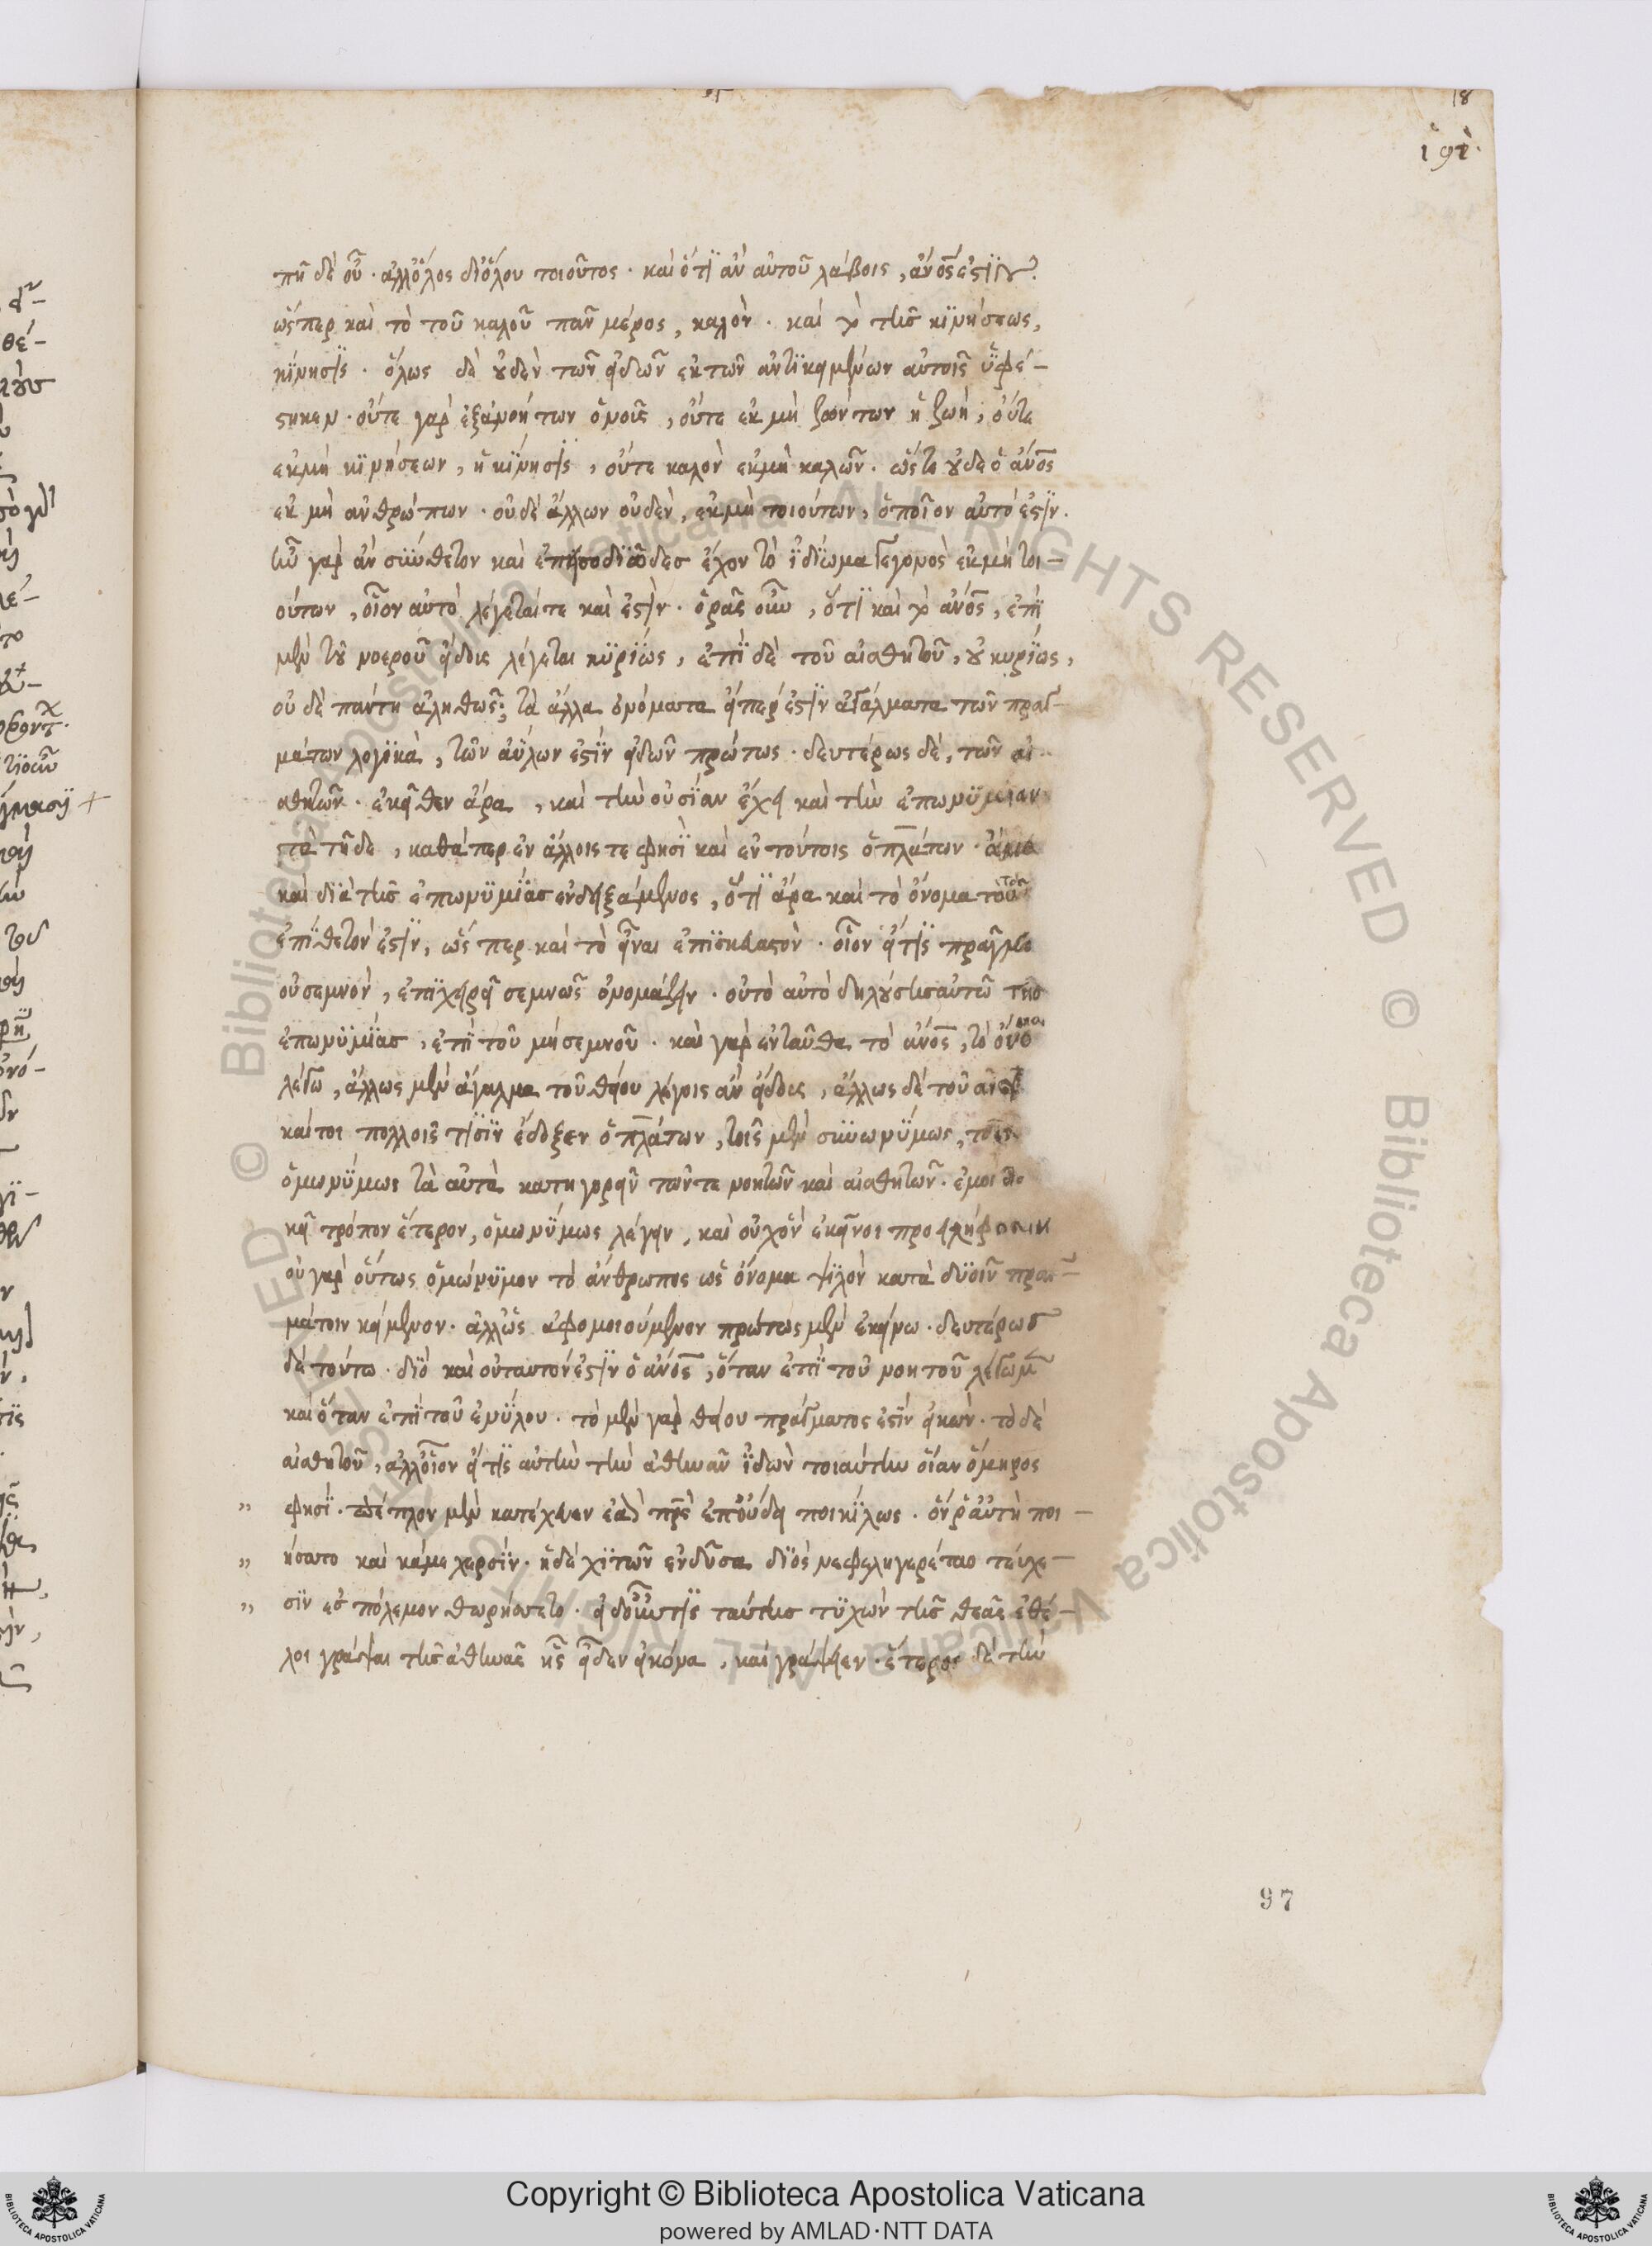 18
191
πῆ δὲ οὔ · ἀλλ' ὅλος δι' ὅλου τοιοῦτος · καὶ ὅτι ἂν αὐτοῦ λάβοις, ἄνος ἐστιν
ὥσπερ καὶ τὸ τοῦ καλοῦ πᾶν μέρος, καλὸν · καὶ τὸ τῆς κινήσεως,
κίνησις · ὅλως δὲ οὐδὲν τῶν εἰδῶν ἐκ τῶν ἀντικειμένων αὐτοῖς ὑφέ-
στηκεν · οὔτε γὰρ ἐξ ἀνοήτων ὁ νοῦς, οὔτε ἐκ μὴ ζώντων ἡ ζωὴ, οὔτε
ἐκ μὴ κινήσεων, ἡ κίνησις, οὔτε καλὸν ἐκ μὴ καλῶν · ὥστε οὐδὲ ὁ ἄνος
ἐκ μὴ ἀνθρώπων · οὐδὲ ἄλλων οὐδὲν, ἐκ μὴ τοιούτων, ὁποῖον αὐτό ἐστιν ·
ἦν γὰρ ἂν σύνθετον καὶ ἐπεισοδιῶδες ἔχον τὸ ἰδίωμα γεγονὸς ἐκ μὴ τοι-
ούτων, οἷον αὐτὸ λέγεταί τε καὶ ἔστιν · ὁρᾷς οὖν, ὅτι καὶ τὸ ἄνος, ἐπὶ
μὲν τοῦ νοεροῦ εἴδους λέγεται κυρίως, ἐπὶ δὲ τοῦ αἰσθητοῦ, οὐ κυρίως,
οὐδὲ πάντη ἀληθῶς; τὰ ἄλλα ὀνόματα εἴπερ ἐστὶν ἀγάλματα τῶν πραγ-
μάτων λογικὰ, τῶν ἀΰλων ἐστὶν εἰδῶν πρώτως · δευτέρως δὲ, τῶν αἰ-
σθητῶν · ἐκεῖθεν ἄρα, καὶ τὴν οὐσίαν ἔχει καὶ τὴν ἐπωνυμίαν
τὰ τῆδε, καθάπερ ἐν ἄλλοις τέ φησι καὶ ἐν τούτοις ὁ πλάτων · ἅμα
καὶ διὰ τῆς ἐπωνυμίας ἐνδειξάμενος, ὅτι ἄρα καὶ τὸ ὄνομα
ἐπίθετόν ἐστιν, ὥσπερ καὶ τὸ εἶναι ἐπίσκευαστὸν · οἷον εἴ τις πρᾶγμα
οὐ σεμνὸν, ἐπιχειρεῖ σεμνῶς ὀνομάζειν · οὐτὸ αὐτὸ δηλούσης αὐτῶ τῆς
ἐπωνυμίας, ἐπὶ τοῦ μὴ σεμνοῦ · καὶ γὰρ ἐνταῦθα τὸ ἄνος, τὸ ὄνομα
λέγω, ἄλλως μὲν ἄγαλμα τοῦ θείου λέγοις ἂν εἴδους, ἄλλως δὲ τοῦ αἰσθ
καίτοι πολλοῖς τισιν ἔδοξεν ὁ πλάτων, τοῖς μὲν συνωνύμως, τοῖς
ὁμωνύμως τὰ αὐτὰ κατηγορεῖν τῶν τε νοητῶν καὶ αἰσθητῶν · ἐμοὶ δο
κεῖ τρόπον ἕτερον, ὁμωνύμως λέγειν, καὶ οὐχ ὃν ἐκεῖνοι προειλήφασιν
οὐ γὰρ οὕτως ὁμώνυμον τὸ ἄνθρωπος ὡς ὄνομα ψιλὸν κατὰ δυοῖν πραγ-
μάτοιν κείμενον · ἀλλ' ὡς ἀφομοιούμενον πρώτως μὲν ἐκείνω · δευτέρως
δὲ τούτω · διὸ καὶ οὐ ταυτόν ἐστιν ὁ ἄνος, ὅταν ἐπὶ τοῦ νοητοῦ λέγωμεν
καὶ ὅταν ἐπὶ τοῦ ἐνύλου · τὸ μὲν γὰρ θείου πράγματος ἐστὶν εἰκών · τὸ δὲ
αἰσθητοῦ, ἀλλ' οἷον εἴ τις αὐτὴν τὴν ἀθηνᾶν ἰδὼν τοιαύτην οἵαν ὅμηρος
" φησὶ · πέπλον μὲν κατέχευεν ἑανὸν πρς ἐπ' οὔδει ποικίλως · ὅν ῥ' αὐτὴ ποι-
" ήσατο καὶ κάμε χερσίν · ἡ δὲ χιτῶν' ἐνδῦσα διὸς νεφεληγερέταο τεύχε-
" σιν ἐς πόλεμον θωρήσσετο · εἰ δ' οὖν τις ταύτης τυχὼν τῆς θεᾶς ἐθέ-
λοι γράψαι τῆς ἀθηνᾶς ἧς εἶδεν εἰκόνα, καὶ γράψειεν · ἕτερος δὲ τὴν
97
Copyright © Biblioteca Apostolica Vaticana
powered by AMLAD·NTT DATA